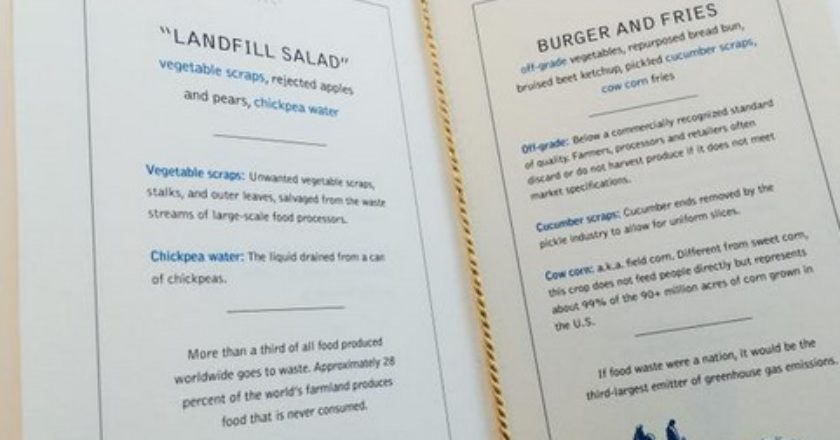 "LANDFILL SALAD"
vegetable scraps, rejected apples
and pears, chickpea water
Vegetable scraps: Unwanted vegetable scraps,
stalks, and outer leaves, salvaged from the waste
streams of large-scale food processors.
Chickpea water: The liquid drained from a can
of chickpeas.
More than a third of all food produced
worldwide goes to waste. Approximately 28
percent of the world's farmland produces
food that is never consumed.
BURGER AND FRIES
off-grade vegetables, repurposed bread bun,
bruised beet ketchup, pickled cucumber scraps,
cow corn fries
Off-grade: Below a commercially recognized standard
of quality. Farmers, processors and retailers often
discard or do not harvest produce if it does not meet
market specifications.
Cucumber scraps: Cucumber ends removed by the
pickle industry to allow for uniform slices.
Cow corn: a.k.a. field corn. Different from sweet corn,
this crop does not feed people directly but represents
about 99% of the 90+ million acres of corn grown in
the U.S.
If food waste were a nation, it would be the
third-largest emitter of greenhouse gas emissions.